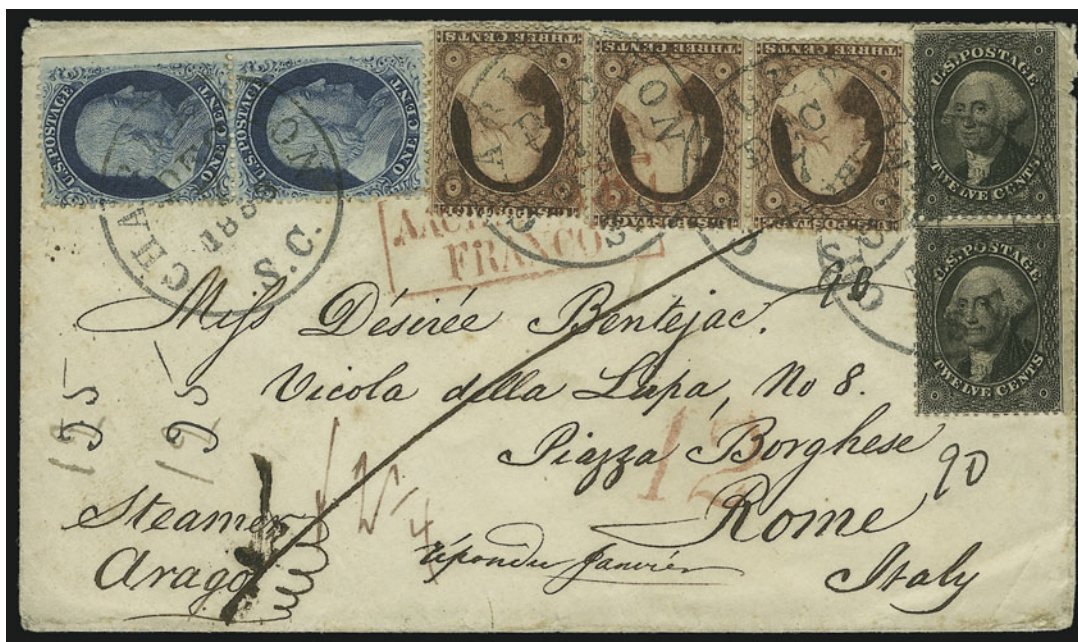 U.S. POSTAGE
ONE CENT
U.S. POSTAGE
ONE CENT
THREE CENTS
U.S. POSTAGE
THREE CENTS
U.S. POSTAGE
THREE CENTS
U.S. POSTAGE
U.S. POSTAGE
TWELVE CENTS
U.S. POSTAGE
TWELVE CENTS
S.C.
FRANCO
90
Miss Désirée Bentejac.
Vicola della Lupa, No 8.
Piazza Borghese
12
90
Rome
Italy
Steamer
Arago
répondu Janvier